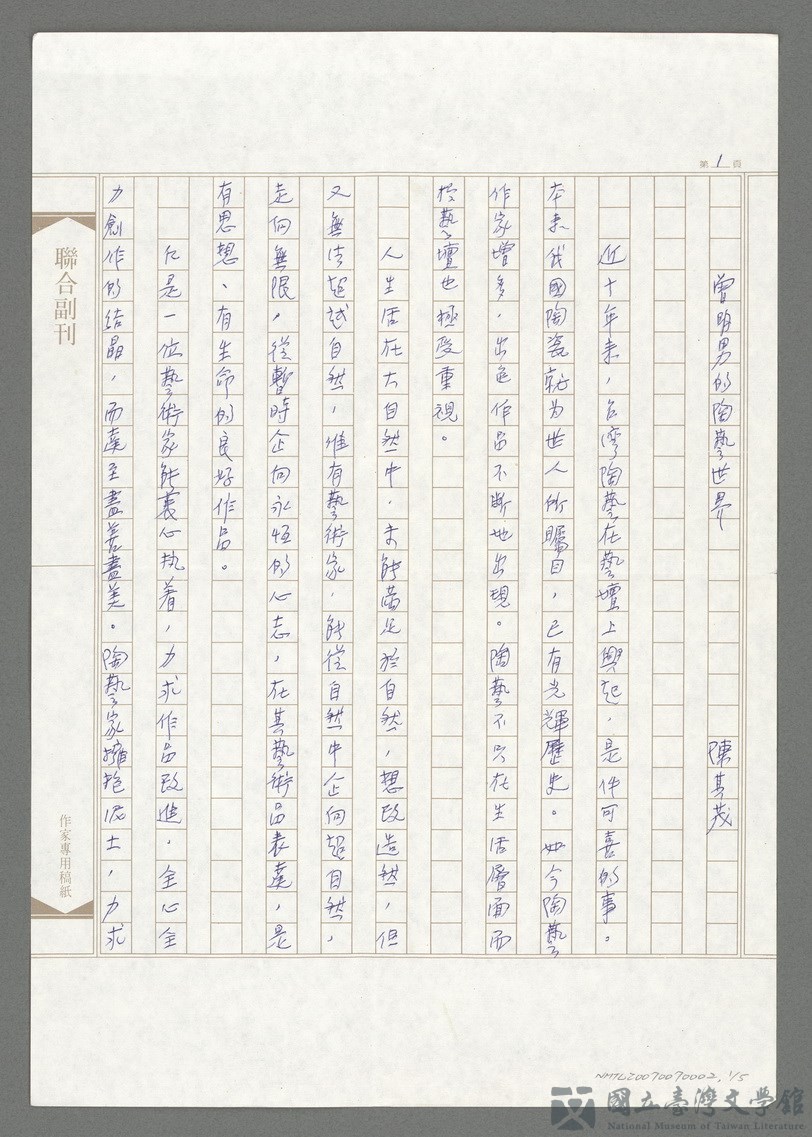 第1頁
曾明男的陶藝世界　陳其茂
近十年來，台灣陶藝在藝壇上興起，是件可喜的事。
本來我國陶瓷就为世人所矚目，已有光輝歷史。如今陶藝
作家增多，出色作品不断地出現。陶藝不只在生活層面而
於藝壇也極受重視。
人生活在大自然中，未能滿足於自然，想改造然，但
又無法超越自然，惟有藝術家，能從自然中企向超自然，
走向無限，從暫時企向永恒的心志，在其藝術品表達，是
有思想、有生命的良好作品。
凡是一位藝術家能衷心执着，力求作品改進，全心全
力創作的結晶，而達至盡善盡美。陶藝家擁抱泥土，力求
聯合副刊
作家專用稿紙
NMTL20070070002, 1/5
國立臺灣文學館
National Museum of Taiwan Literature